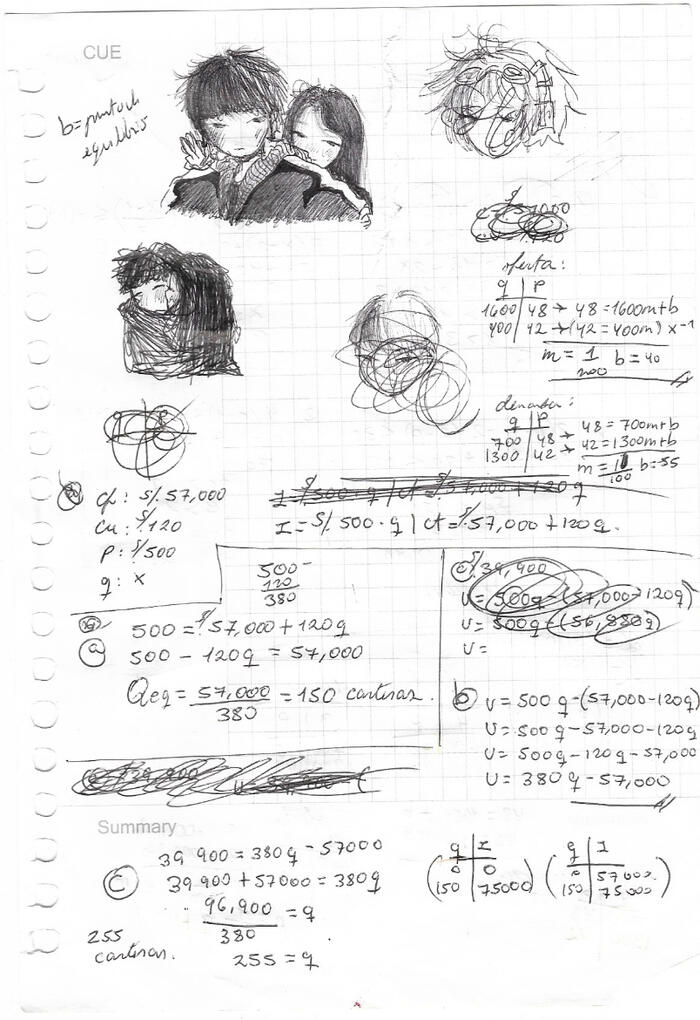 CUE
b= punto de
equilibrio
oferta:
q | P
1600 | 48 → 48 = 1600m+b
400 | 42 → (42 = 400m) x-1
m = 1/200 b = 40
demanda:
q | P
700 | 48 → 48 = 700m+b
1300 | 42 → 42 = 1300m+b
m = 1/100 b = 55
cf: S/. 57,000
cu: S/. 120
P: S/ 500
q: x
I = S/. 500 · q | ct = S/. 57,000 + 120 q
I = S/. 500 · q | ct = S/. 57,000 + 120 q.
500 -
120
380
a
500 = S/. 57,000 + 120 q
500 - 120 q = 57,000
Qeq = 57,000/380 = 150 carteras.
c S/. 39,900
U = 500q - (57,000 - 120q)
U = 500q - (56,880q)
U =
b U = 500 q - (57,000 - 120q)
U = 500 q - 57,000 - 120q
U = 500q - 120q - 57,000
U = 380q - 57,000
Summary
c 39 900 = 380q - 57000
39 900 + 57000 = 380q
96,900/380 = q
255 = q
255
carteras.
q | I
0 | 0
150 | 75000
q | I
0 | 57000.
150 | 75000